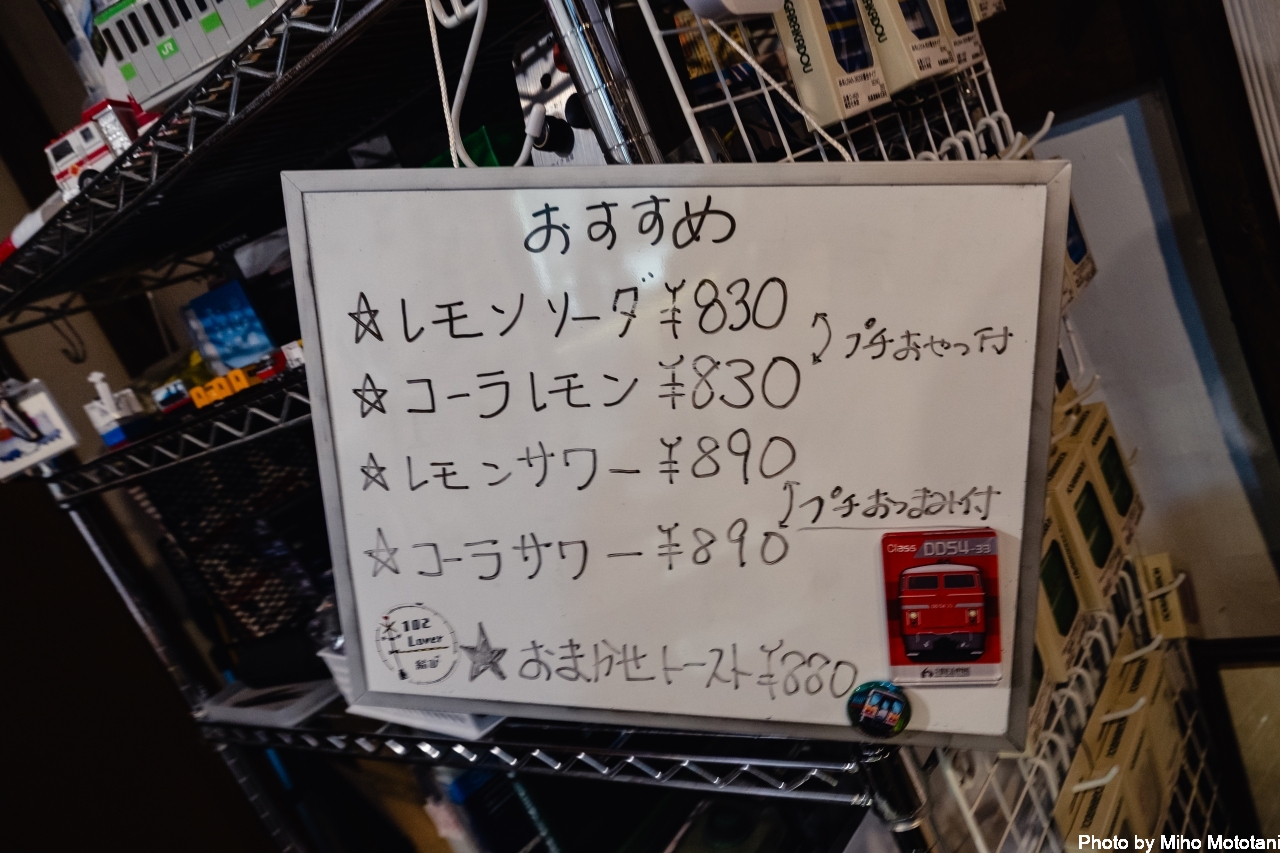 おすすめ
☆レモンソーダ ¥830
プチおやつ付
☆コーラレモン ¥830
☆レモンサワー ¥890
プチおつまみ付
☆コーラサワー ¥890
★おまかせトースト ¥880
102
Lover
Class DD54-33
JR
GREENDOU
Photo by Miho Mototani